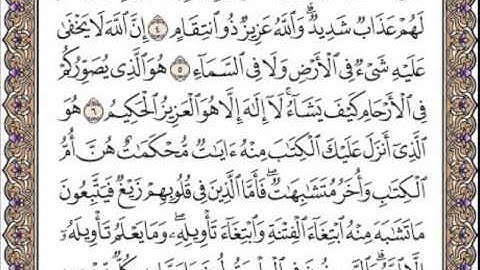 لَهُمْ عَذَابٌ شَدِيدٌ ۗ وَٱللَّهُ عَزِيزٌ ذُو ٱنتِقَامٍ ٤ إِنَّ ٱللَّهَ لَا يَخْفَىٰ
عَلَيْهِ شَىْءٌ فِى ٱلْأَرْضِ وَلَا فِى ٱلسَّمَآءِ ٥ هُوَ ٱلَّذِى يُصَوِّرُكُمْ
فِى ٱلْأَرْحَامِ كَيْفَ يَشَآءُ ۚ لَآ إِلَٰهَ إِلَّا هُوَ ٱلْعَزِيزُ ٱلْحَكِيمُ ٦ هُوَ
ٱلَّذِىٓ أَنزَلَ عَلَيْكَ ٱلْكِتَٰبَ مِنْهُ ءَايَٰتٌ مُّحْكَمَٰتٌ هُنَّ أُمُّ
ٱلْكِتَٰبِ وَأُخَرُ مُتَشَٰبِهَٰتٌ ۖ فَأَمَّا ٱلَّذِينَ فِى قُلُوبِهِمْ زَيْغٌ فَيَتَّبِعُونَ
مَا تَشَٰبَهَ مِنْهُ ٱبْتِغَآءَ ٱلْفِتْنَةِ وَٱبْتِغَآءَ تَأْوِيلِهِۦ ۗ وَمَا يَعْلَمُ تَأْوِيلَهُۥٓ